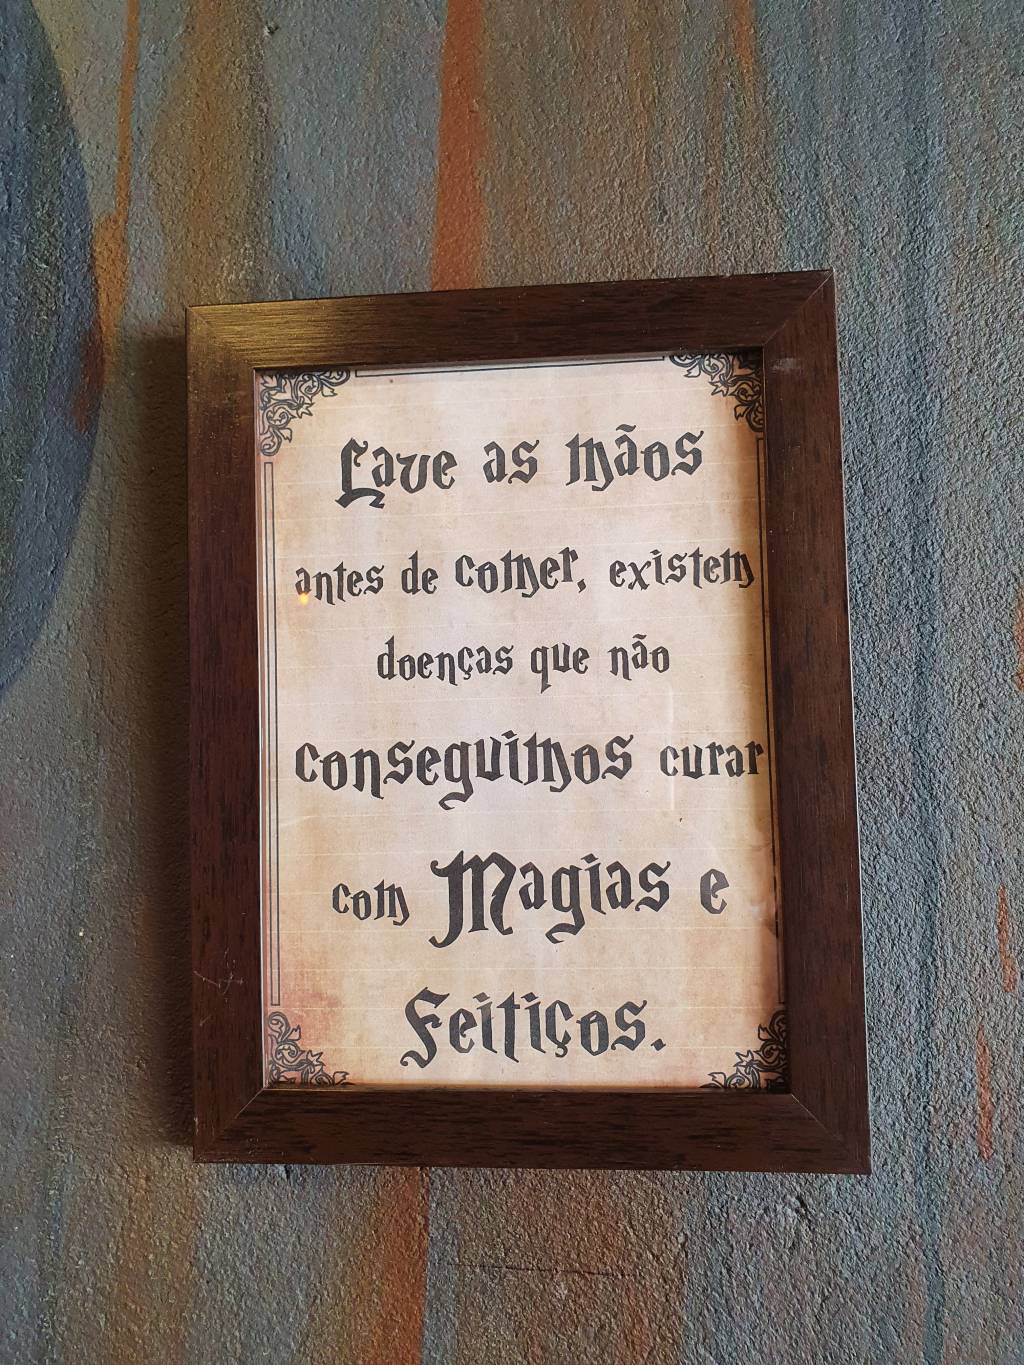 Lave as mãos
antes de comer, existem
doenças que não
conseguimos curar
com Magias e
Feitiços.